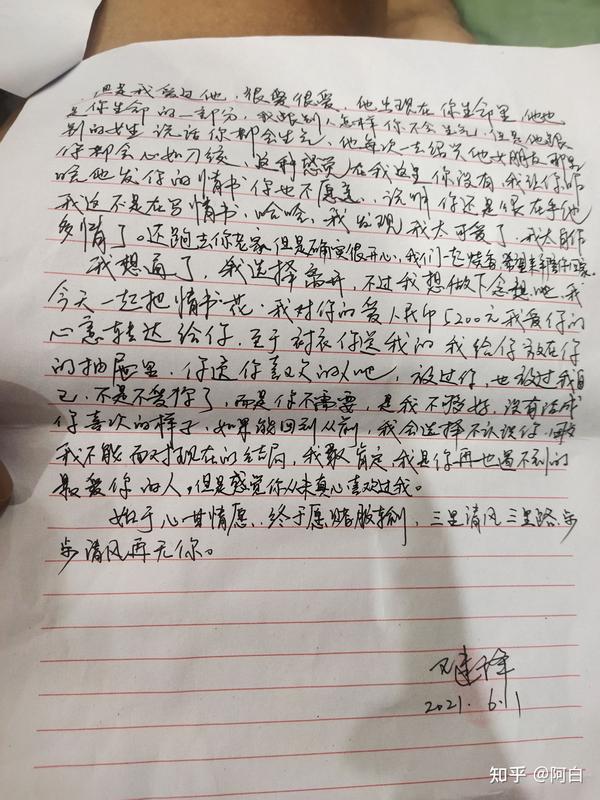 但是我爱过他,狠爱很爱,他出现在你生命里,他也
是你生命的一部分,我跟别人怎样你不会生气,但是他跟
别的女生说话你都会生气,他每次一去绍兴他女朋友那里
你都会心如刀绞,这种感觉在我这里你没有,我让你
他发你的情书你也不愿意,说明你还是很在乎他
我这不是在写情书,哈哈,我发现我太可爱了,我太自作
多情了。还跑去你老家但是确实很开心,我们一起烧香,希望
我想通了,我选择离开,不过我想做下念想吧,我
今天一起把情书 花,我对你的爱人民币5200元我爱你的
心意转达给你,至于衬衣你送我的我给你放在你
的抽屉里,你送你喜欢的人吧,放过你,也放过我自
己,不是不爱你了,而是你不需要,是我不够好,没有活成
你喜欢的样子,如果能回到从前,我会选择不认识你,
我不能面对现在的结局,我敢肯定,我是你再也遇不到的
最爱你的人,但是感觉你从未真心喜欢过我。
始于心甘情愿,终于愿赌服输,三里清风三里路,步
步清风再无你。
2021.6.1
知乎 @阿白